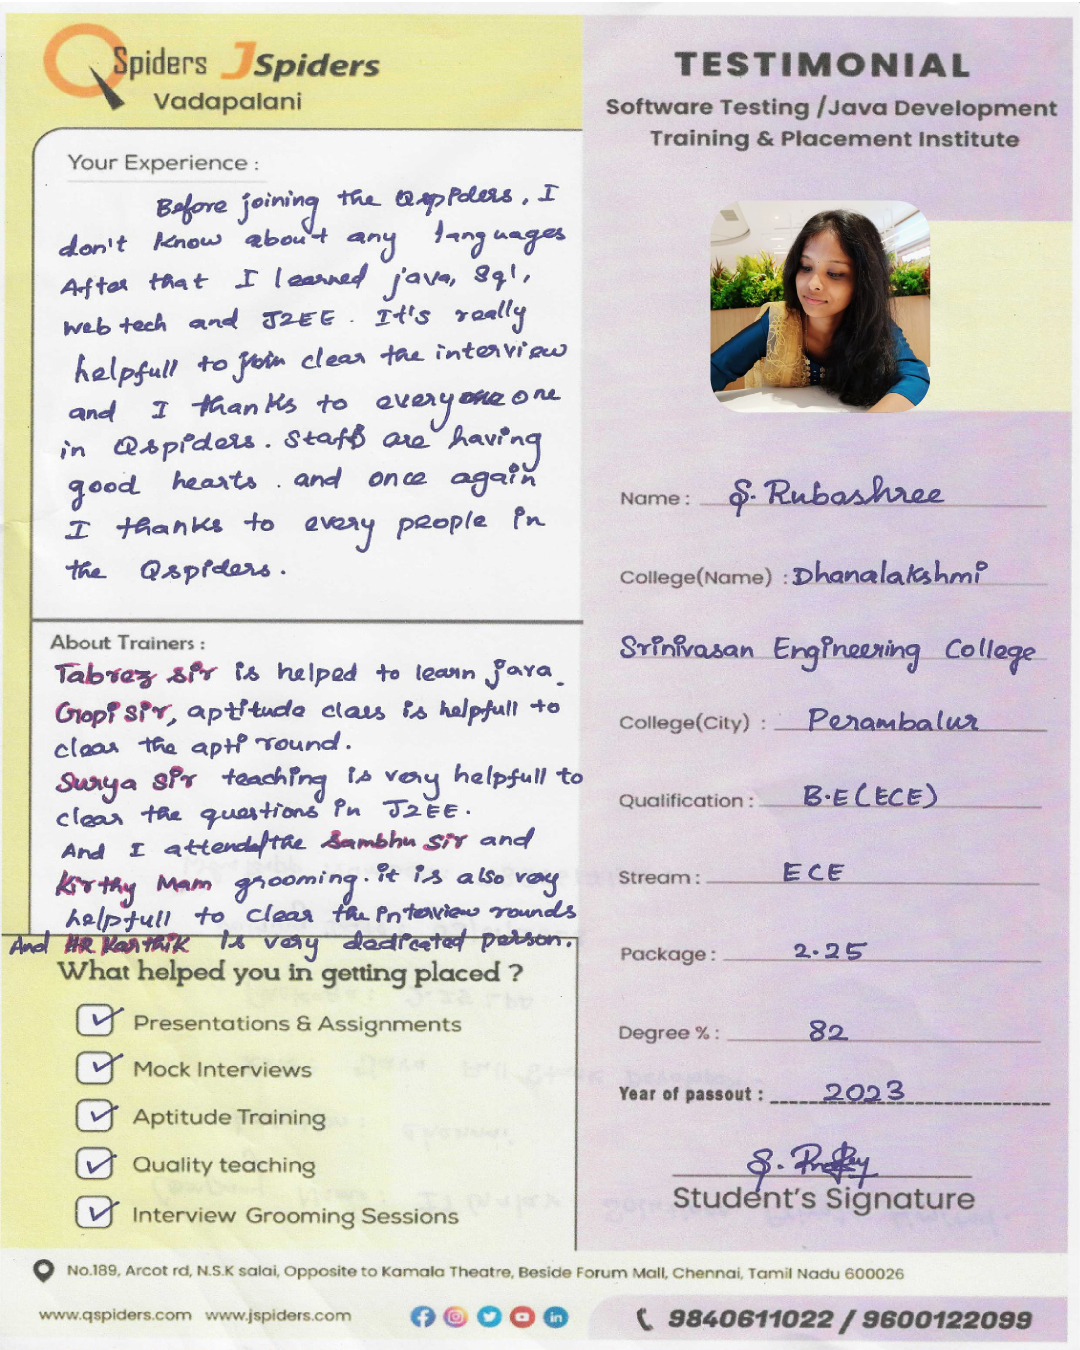 QSpiders JSpiders
Vadapalani
TESTIMONIAL
Software Testing /Java Development
Training & Placement Institute
Your Experience :
Before joining the Qspiders, I
don't know about any languages
After that I learned java, Sql,
web tech and J2EE. It's really
helpfull to join clear the interview
and I thanks to everyone one
in Qspiders. Staff are having
good hearts. and once again
I thanks to every people in
the Qspiders.
About Trainers :
Tabrez sir is helped to learn java.
Gopi sir, aptitude class is helpfull to
clear the apti round.
Surya sir teaching is very helpfull to
clear the questions in J2EE.
And I attended the Sambhu sir and
Kirthy Mam grooming. it is also very
helpfull to clear the interview rounds
And HR Karthik is very dedicated person.
What helped you in getting placed ?
Presentations & Assignments
Mock Interviews
Aptitude Training
Quality teaching
Interview Grooming Sessions
Name : S. Rubashree
College(Name) : Dhanalakshmi
Srinivasan Engineering College
College(City) : Perambalur
Qualification : B.E (ECE)
Stream : ECE
Package : 2.25
Degree % : 82
Year of passout : 2023
Student's Signature
No.189, Arcot rd, N.S.K salai, Opposite to Kamala Theatre, Beside Forum Mall, Chennai, Tamil Nadu 600026
www.qspiders.com www.jspiders.com
9840611022 / 9600122099